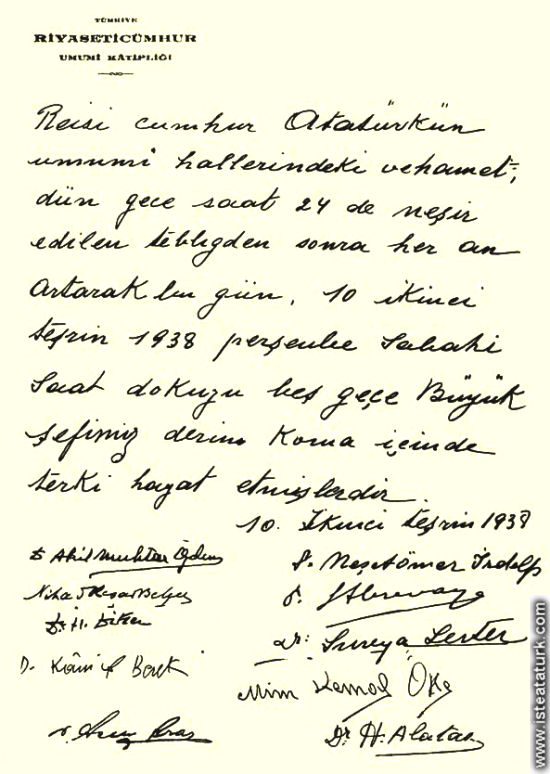 TÜRKİYE
RİYASETİCÜMHUR
UMUMİ KÂTİPLİĞİ
Reisi cumhur Atatürkün
umumi hallerindeki vehamet,
dün gece saat 24 de neşir
edilen tebliğden sonra her an
Artarak bu gün, 10 ikinci
teşrin 1938 perşenbe Sabahi
Saat dokuzu beş geçe Büyük
şefimiz derin Koma içinde
terki hayat etmişlerdir.
10. İkinci teşrin 1938
Dr Akil Muhtar Özden
Dr. Neşetömer İrdelp
Nihat Reşat Belger
Dr.
Dr.
Dr: Süreya Serter
Dr. Kâmil Berk
Mim Kemal Öke
Dr. Aras
Dr. H. Alatas
www.isteataturk.com